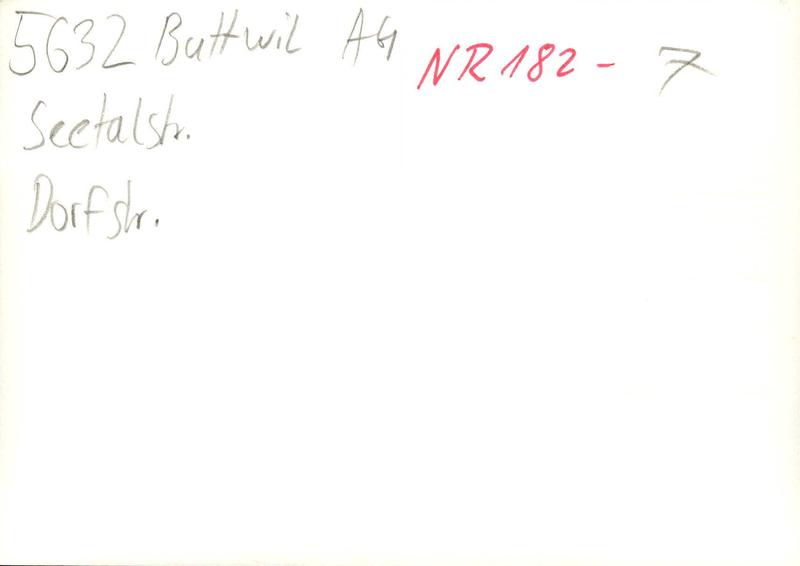 5632 Buttwil AG NR 182 - 7
Seetalstr.
Dorfstr.